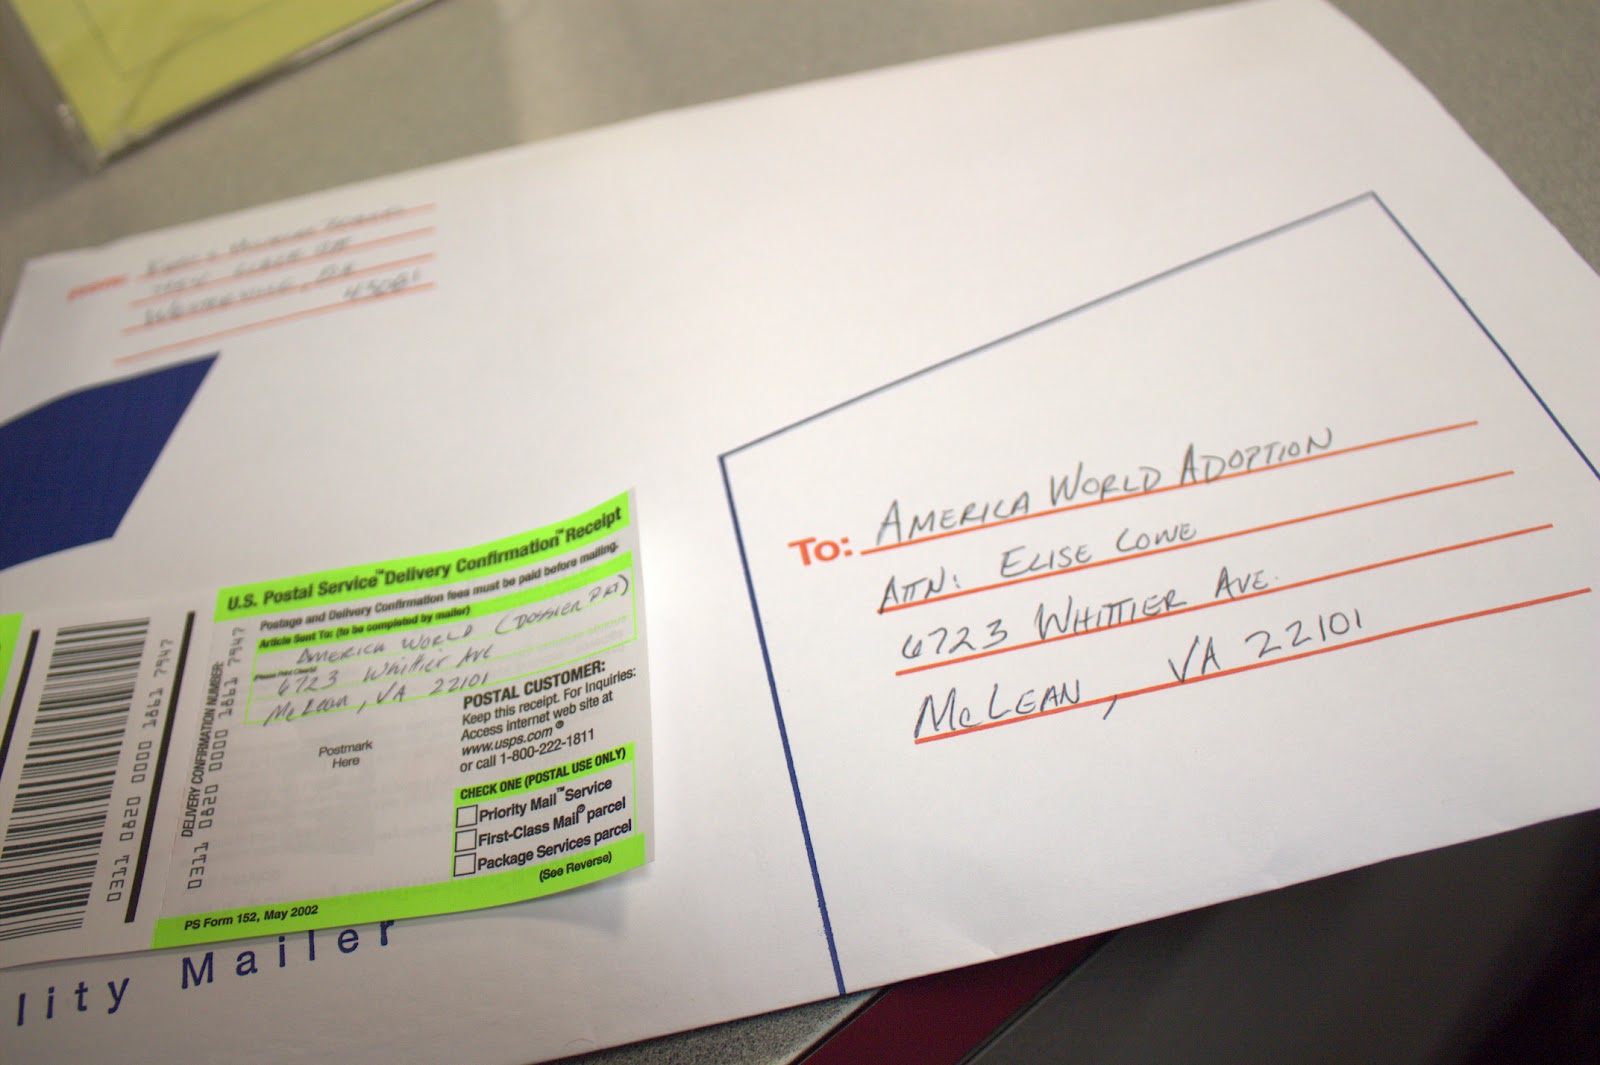 43081
To: AMERICA WORLD ADOPTION
ATTN: ELISE LOWE
6723 WHITTIER AVE.
MCLEAN, VA 22101
U.S. Postal Service™ Delivery Confirmation™ Receipt
Postage and Delivery Confirmation fees must be paid before mailing.
Article Sent To: (to be completed by mailer)
AMERICA WORLD (DOSSIER
6723 Whittier Ave
McLean, VA 22101
DELIVERY CONFIRMATION NUMBER:
0311 0820 0000 1861 7947
Postmark
Here
POSTAL CUSTOMER:
Keep this receipt. For Inquiries:
Access internet web site at
www.usps.com®
or call 1-800-222-1811
CHECK ONE (POSTAL USE ONLY)
Priority Mail™ Service
First-Class Mail® parcel
Package Services parcel
(See Reverse)
PS Form 152, May 2002
0311 0820 0000 1861 7947
lity Mailer